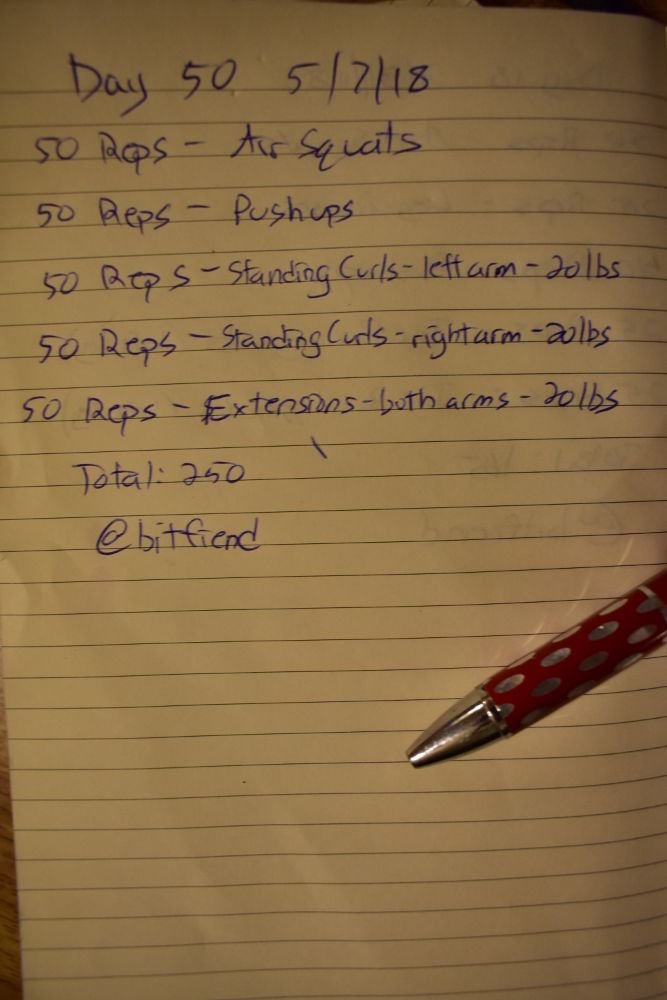 Day 50 5/7/18
50 Reps - Air Squats
50 Reps - Pushups
50 Reps - Standing Curls - left arm - 20 lbs
50 Reps - Standing Curls - right arm - 20 lbs
50 Reps - Extensions - both arms - 20 lbs
Total: 250
@bitfiend